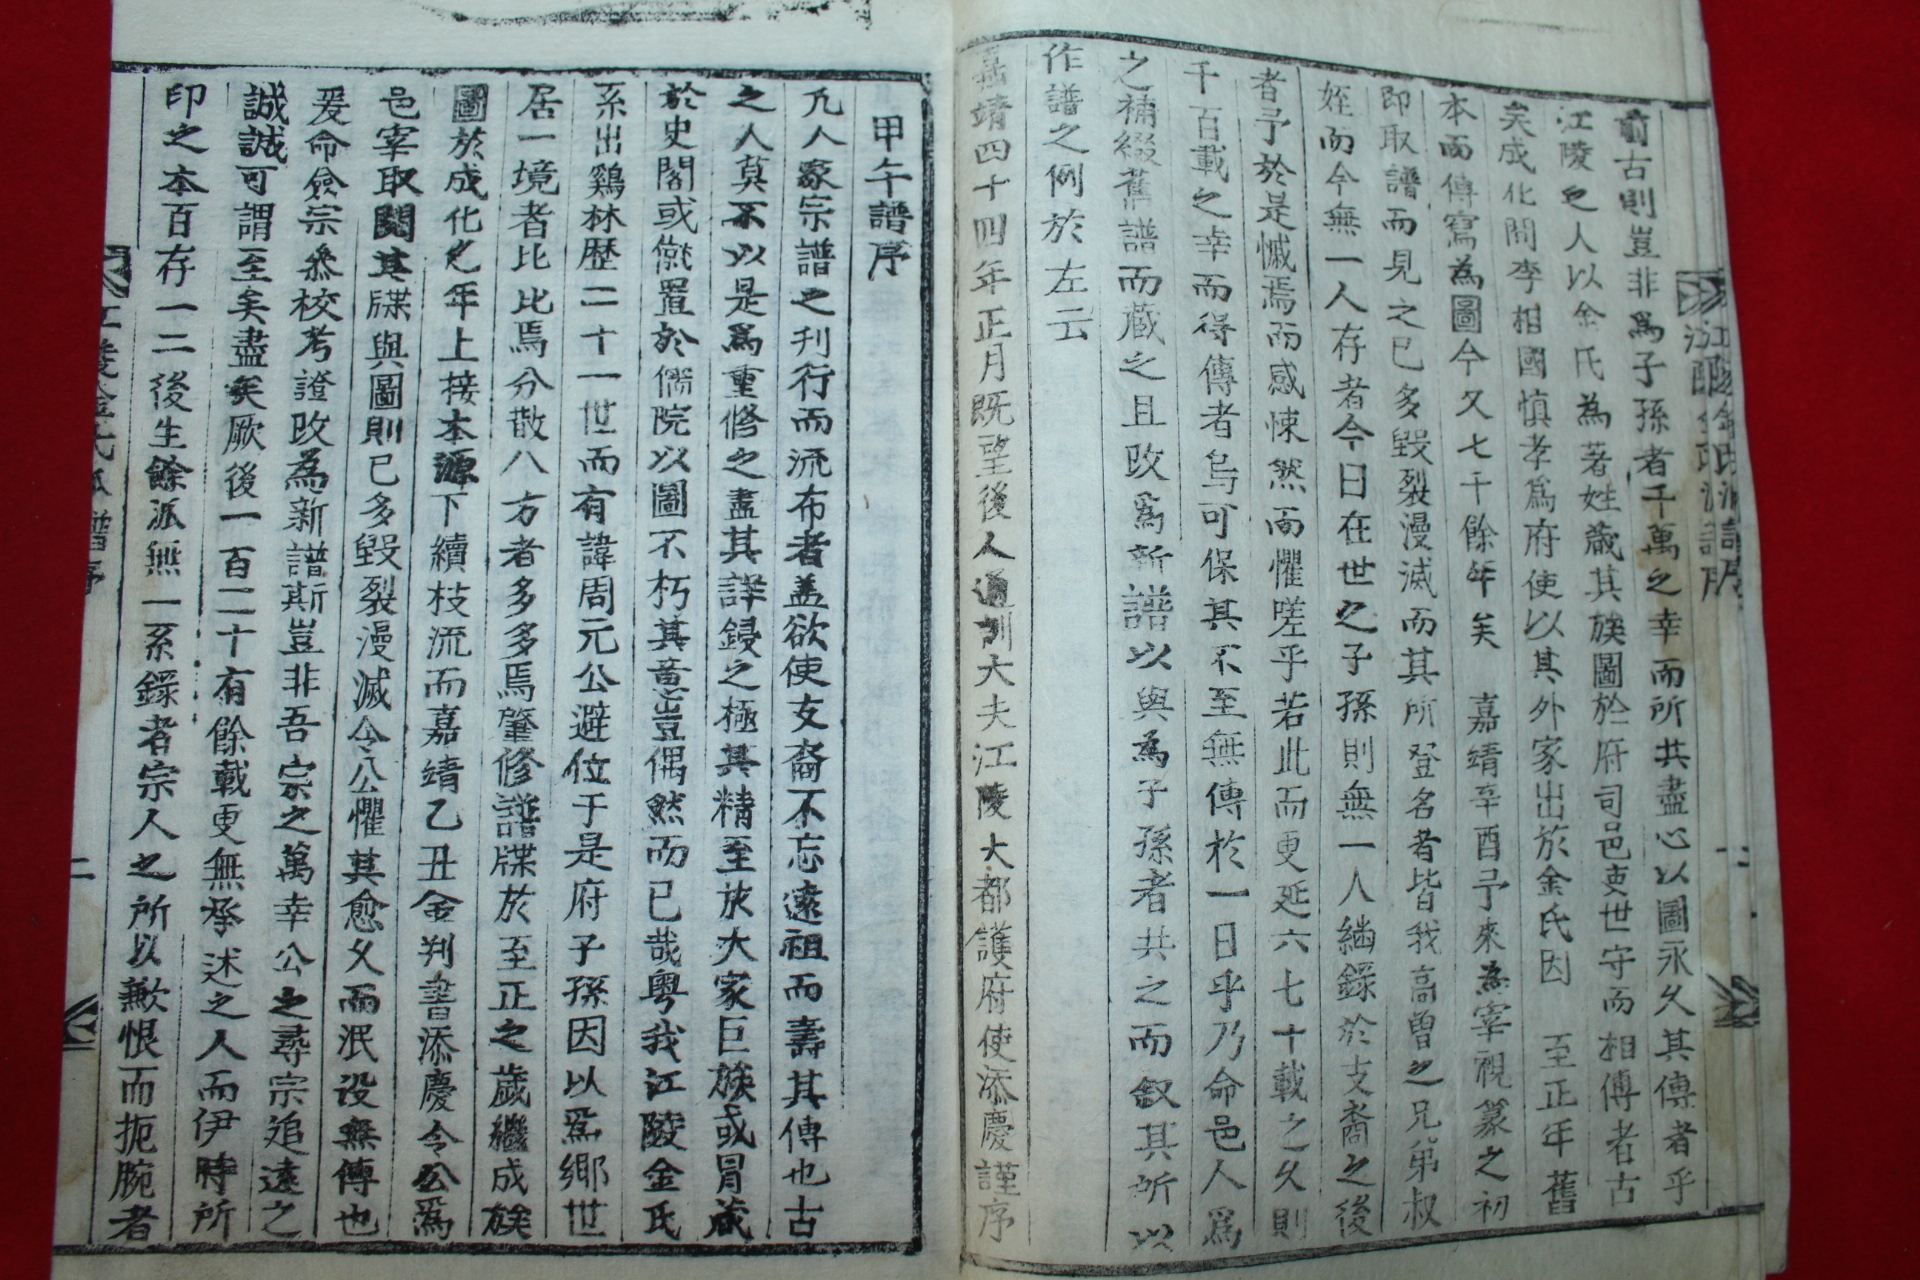 前古則豈非爲子孫者千萬之幸而所共盡心以圖永久其傳者乎
江陵之人以金氏為著姓蔵其族圖於府司邑吏世守而相傳者古
矣成化間李相國愼孝爲府使以其外家出於金氏因 至正年舊
本而傳寫為圖今又七十餘年矣 嘉靖辛酉予來為宰視篆之初
即取譜而見之已多毀裂漫滅而其所登名者皆我高曾之兄弟叔
姪而今無一人存者今日在世之子孫則無一人繼錄於支裔之後
者予於是慽焉而感悚然而懼嗟乎若此而更延六七十載之久則
千百載之幸而得傳者烏可保其不至無傳於一日乎乃命邑人爲
之補綴舊譜而蔵之且改爲新譜以與為子孫者共之而叙其所以
作譜之例於左云
嘉靖四十四年正月既望後人通訓大夫江陵大都護府使添慶謹序
甲午譜序
凡人家宗譜之刊行而流布者盖欲使支裔不忘遠祖而壽其傳也古
之人莫不以是爲重修之盡其詳鋟之極其精至於大家巨族或冒蔵
於史閣或僦置於儒院以圖不朽其意豈偶然而已哉粤我江陵金氏
系出鷄林歷二十一世而有諱周元公避位于是府子孫因以爲鄉世
居一境者比比焉分散八方者多多焉肇修譜牒於至正之歲繼成族
圖於成化之年上接本源下續枝流而嘉靖乙丑金判書添慶令公爲
邑宰取閱其牒與圖則已多毀裂漫滅令公懼其愈久而泯沒無傳也
爰命僉宗叅校考證改為新譜斯豈非吾宗之萬幸公之尋宗追遠之
誠誠可謂至矣盡矣厥後一百二十有餘載更無承述之人而伊時所
印之本百存一二後生餘派無一系錄者宗人之所以歉恨而扼腕者